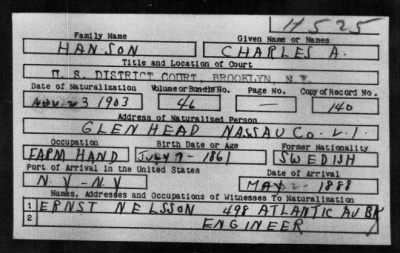 H525
Family Name Given Name or Names
HANSON CHARLES A.
Title and Location of Court
U. S. DISTRICT COURT, BROOKLYN, N.Y.
Date of Naturalization Volume or Bundle No. Page No. Copy of Record No.
NOV. 23 1903 46 — 140
Address of Naturalized Person
GLEN HEAD NASSAU CO. L.I.
Occupation Birth Date or Age Former Nationality
FARM HAND JULY 7 - 1861 SWEDISH
Port of Arrival in the United States Date of Arrival
N.Y - N.Y MAY 2 - 1888
Names, Addresses and Occupations of Witnesses To Naturalization
1 ERNST NELSSON 498 ATLANTIC AV BK
2 ENGINEER